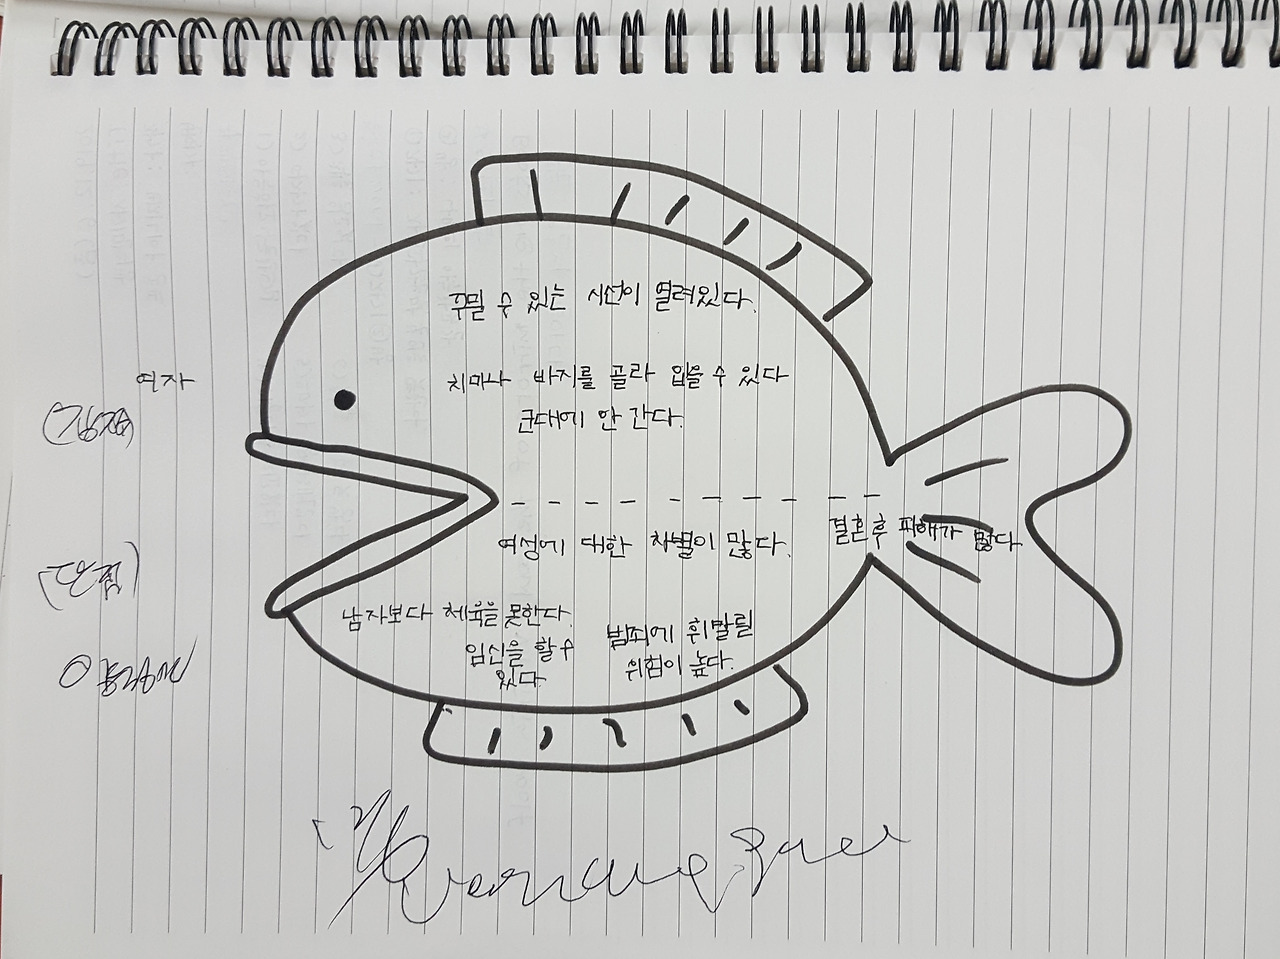 꾸밀 수 있는 시선이 열려있다.
여자
치마나 바지를 골라 입을 수 있다
군대에 안 간다.
여성에 대한 차별이 많다.
결혼 후 피해가 많다
남자보다 체육을 못한다.
임신을 할 수
있다.
범죄에 휘말릴
위험이 높다.